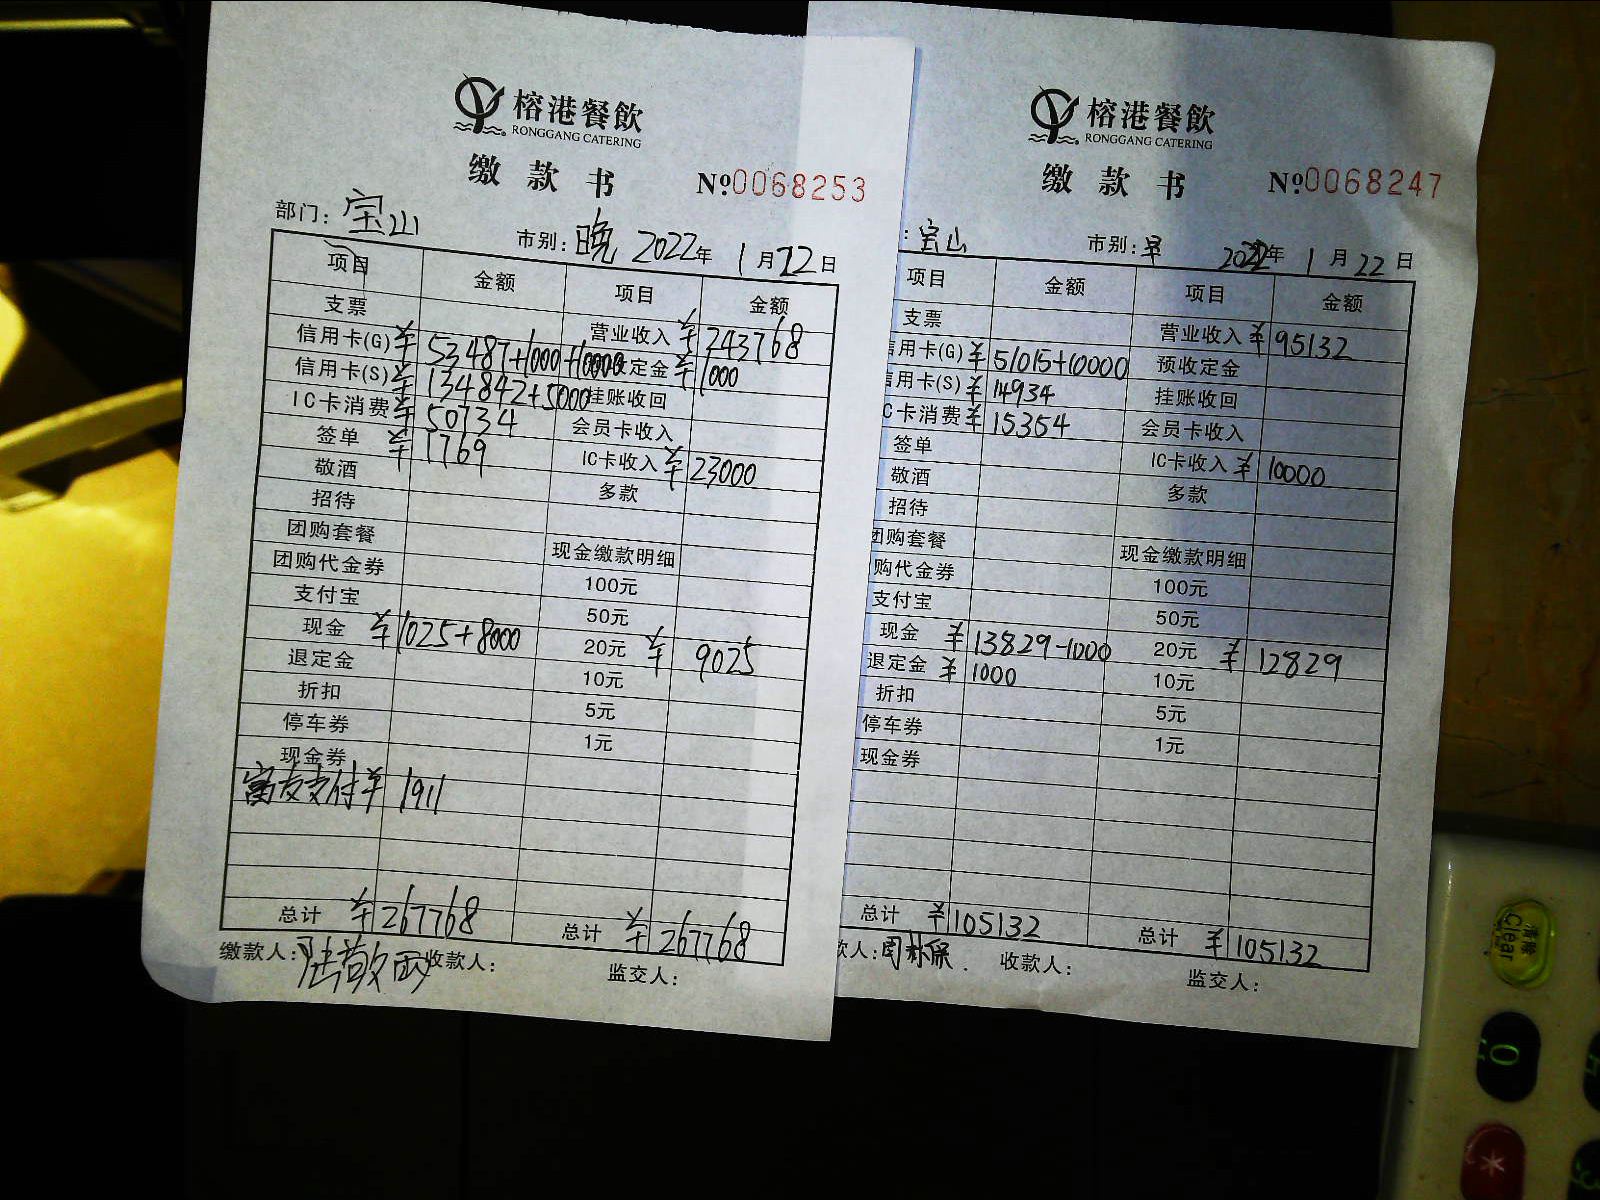 榕港餐飲
RONGGANG CATERING
缴款书 №0068253
部门: 宝山 市别: 晚 2022年 1月22日
项目 金额 项目 金额
支票 营业收入 ¥243768
信用卡(G) ¥53487+1000+10000 定金 ¥1000
信用卡(S) ¥134842+5000 挂账收回
IC卡消费 ¥50734 会员卡收入
签单 ¥1769 IC卡收入 ¥23000
敬酒 多款
招待
团购套餐 现金缴款明细
团购代金券 100元
支付宝 50元
现金 ¥1025+8000 20元 ¥9025
退定金 10元
折扣 5元
停车券 1元
现金券
富友支付 ¥1911
总计 ¥267768 总计 ¥267768
缴款人: 陆敬 收款人: 监交人:
榕港餐飲
RONGGANG CATERING
缴款书 №0068247
: 宝山 市别: 早 2022年 1月22日
项目 金额 项目 金额
支票 营业收入 ¥95132
信用卡(G) ¥51015+10000 预收定金
信用卡(S) ¥14934 挂账收回
C卡消费 ¥15354 会员卡收入
签单 IC卡收入 ¥10000
敬酒 多款
招待
团购套餐 现金缴款明细
购代金券 100元
支付宝 50元
现金 ¥13829-1000 20元 ¥12829
退定金 ¥1000 10元
折扣 5元
停车券 1元
现金券
总计 ¥105132 总计 ¥105132
款人: 收款人: 监交人:
清除
Clear
0
*